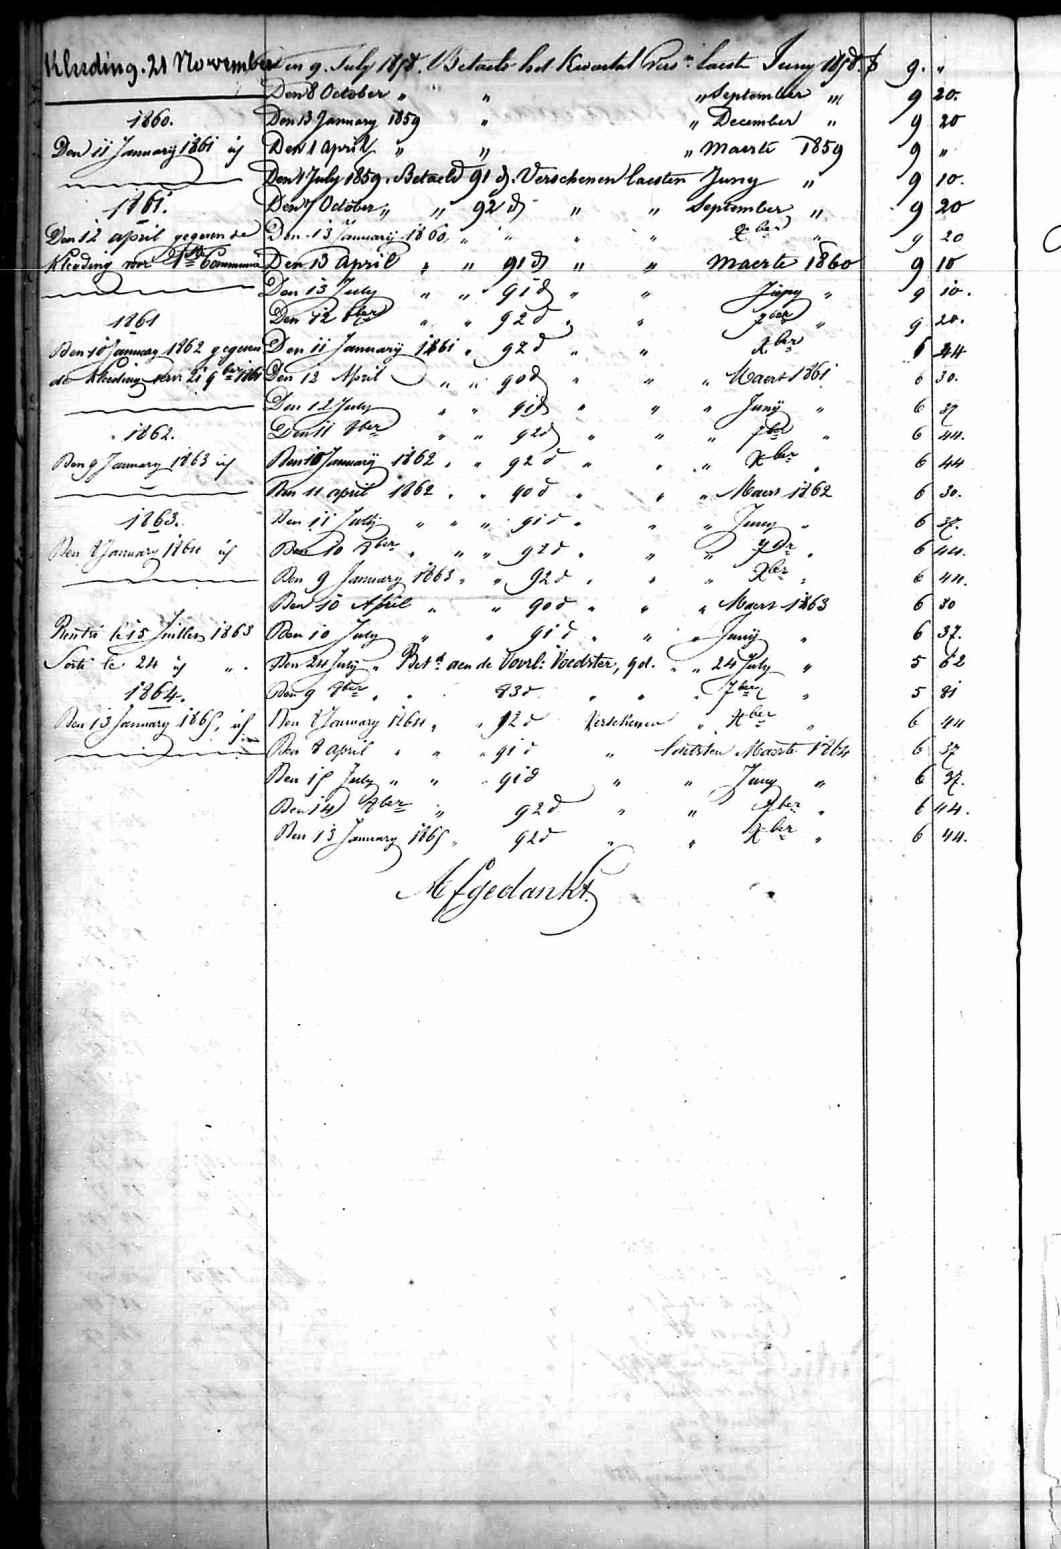 Kleeding. 21 November
1860.
Den 11 Januarij 1861 id
1861.
Den 12 april gegeven de
Kleeding voor 1ste Communie
1861
Den 10 January 1862 gegeven
de kleeding voor 21 9ber 1861
1862.
Den 9 January 1863 id
1863.
Den 8 January 1864 id
Rentré le 15 Juillet 1863
Sorti le 24 id " .
1864.
Den 13 January 1865, id
Den 9 July 1858. Betaelt het Kwartal Vers. laeste Juny 1858. f 9. "
Den 8 October " " " September " 9 20.
Den 13 January 1859 " " December " 9 20
Den 1 April " " " Maerte 1859 9 "
Den 1 July 1859. Betaeld 91 d. Verschenen laesten Juny " 9 10.
Den 7 October " " 92 d " " September " 9 20
Den 13 Januarij 1860 " " " " Xber " 9 20
Den 13 April " " 91 d " " Maerte 1860 9 10
Den 13 July " " 91 d " " Juny " 9 10.
Den 12 8ber " " 92 d " " 7ber " 9 20.
Den 11 Januarij 1861 " 92 d " " Xber 6 44
Den 12 April " " 90 d " " " Maert 1861 6 30.
Den 12 July " " 91 d " " " Junij " 6 37
Den 11 8ber " " 92 d " " " 7ber " 6 44.
Den 10 Januarij 1862 " " 92 d " " " Xber " 6 44
Den 11 april 1862 " " 90 d " " " Maert 1862 6 30.
Den 11 Julij " " " 91 d " " " Juny " 6 37.
Den 10 8ber " " " 92 d " " " 7br " 6 44.
Den 9 January 1863 " " 92 d " " " Xber " 6 44.
Den 10 April " " 90 d " " " Maert 1863 6 30
Den 10 July " " 91 d " " " Junij " 6 37.
Den 24 July " Bet.d aen de Voorl: Voedster, 9 d. " " 24 July " 5 62
Den 9 8ber " " 83 d " " " 7ber " 5 81
Den 8 January 1864 " " 92 d Verschenen " Xber " 6 44
Den 8 april " " " 91 d " laetsten Maerte 1864 6 37
Den 15 July " " " 91 d " " Juny " 6 37.
Den 14 8ber " 92 d " " 7ber " 6 44.
Den 13 January 1865 " 92 d " " Xber " 6 44.
Afgedankt.